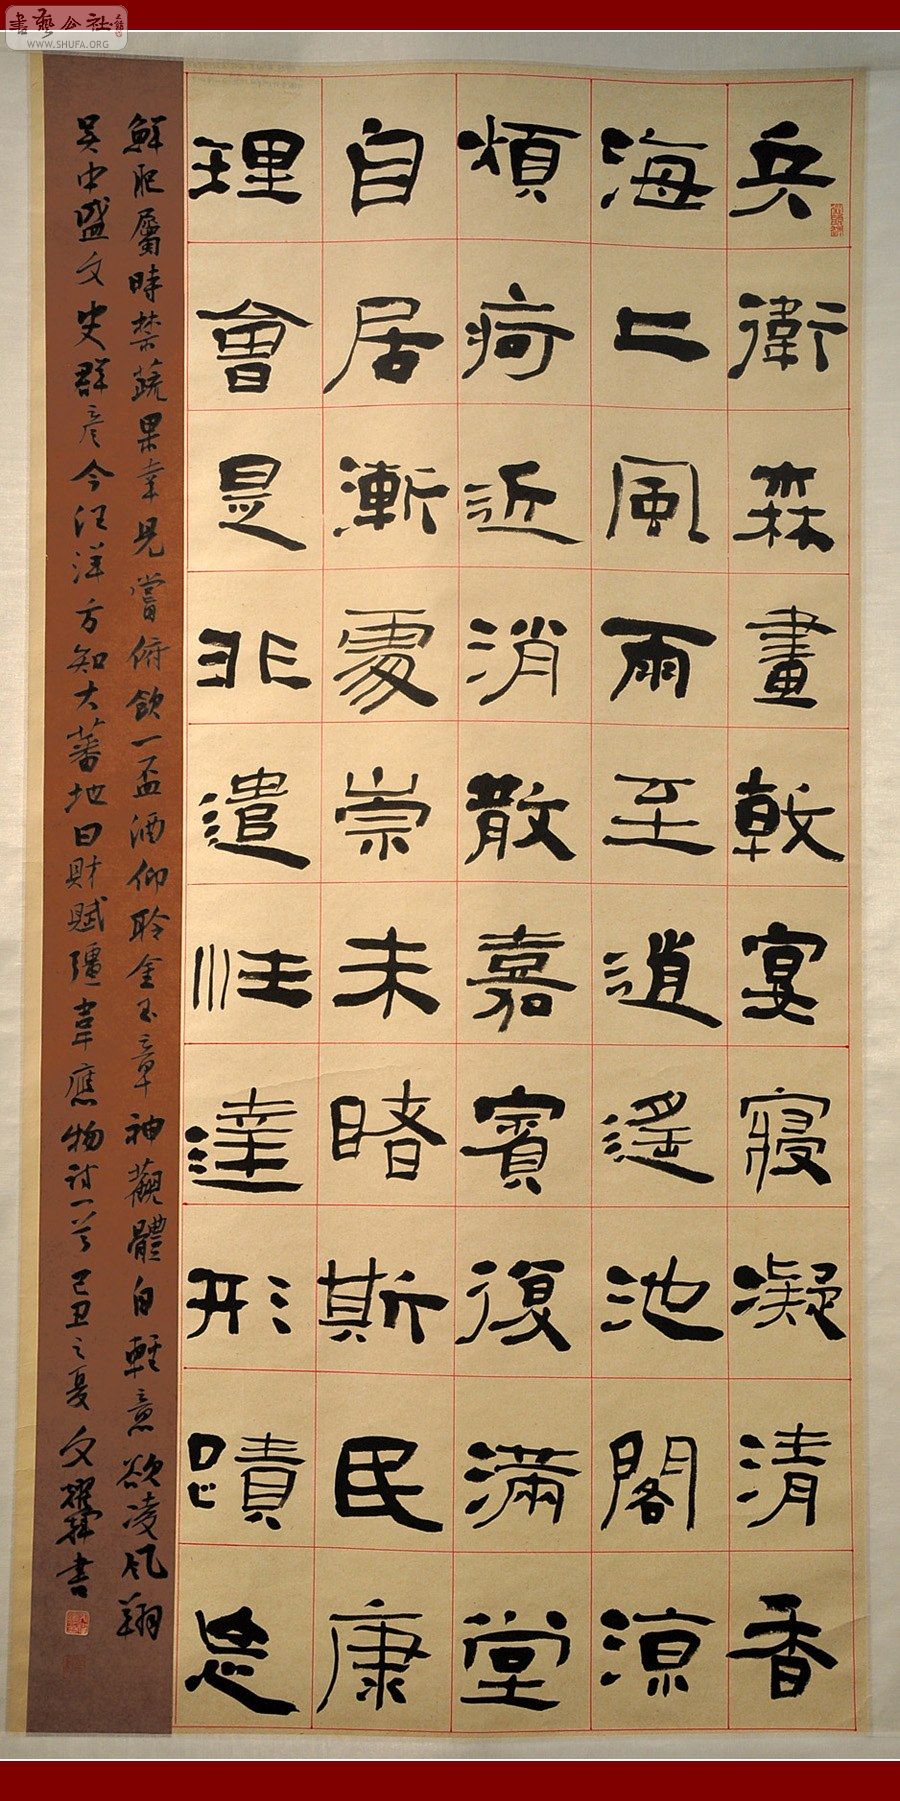 書藝公社
WWW.SHUFA.ORG
兵衛森畫戟宴寢凝清香
海上風雨至逍遙池閣涼
煩疴近消散嘉賓復滿堂
自居漸處崇未睹斯民康
理會是非遣性達形蹟忘
鮮肥屬時禁蔬果幸見嘗俯飲一盃酒仰聆金玉章神觀體自輕意欲凌風翔
吳中盛文史群彥今汪洋方知大蕃地曰財賦彊韋應物詩一首己丑之夏文書